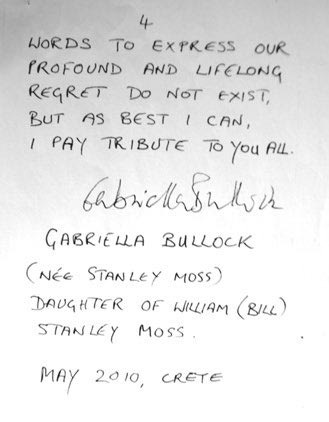 4
WORDS TO EXPRESS OUR
PROFOUND AND LIFELONG
REGRET DO NOT EXIST,
BUT AS BEST I CAN,
I PAY TRIBUTE TO YOU ALL.
Gabriella Bullock
GABRIELLA BULLOCK
(NÉE STANLEY MOSS)
DAUGHTER OF WILLIAM (BILL)
STANLEY MOSS.
MAY 2010, CRETE